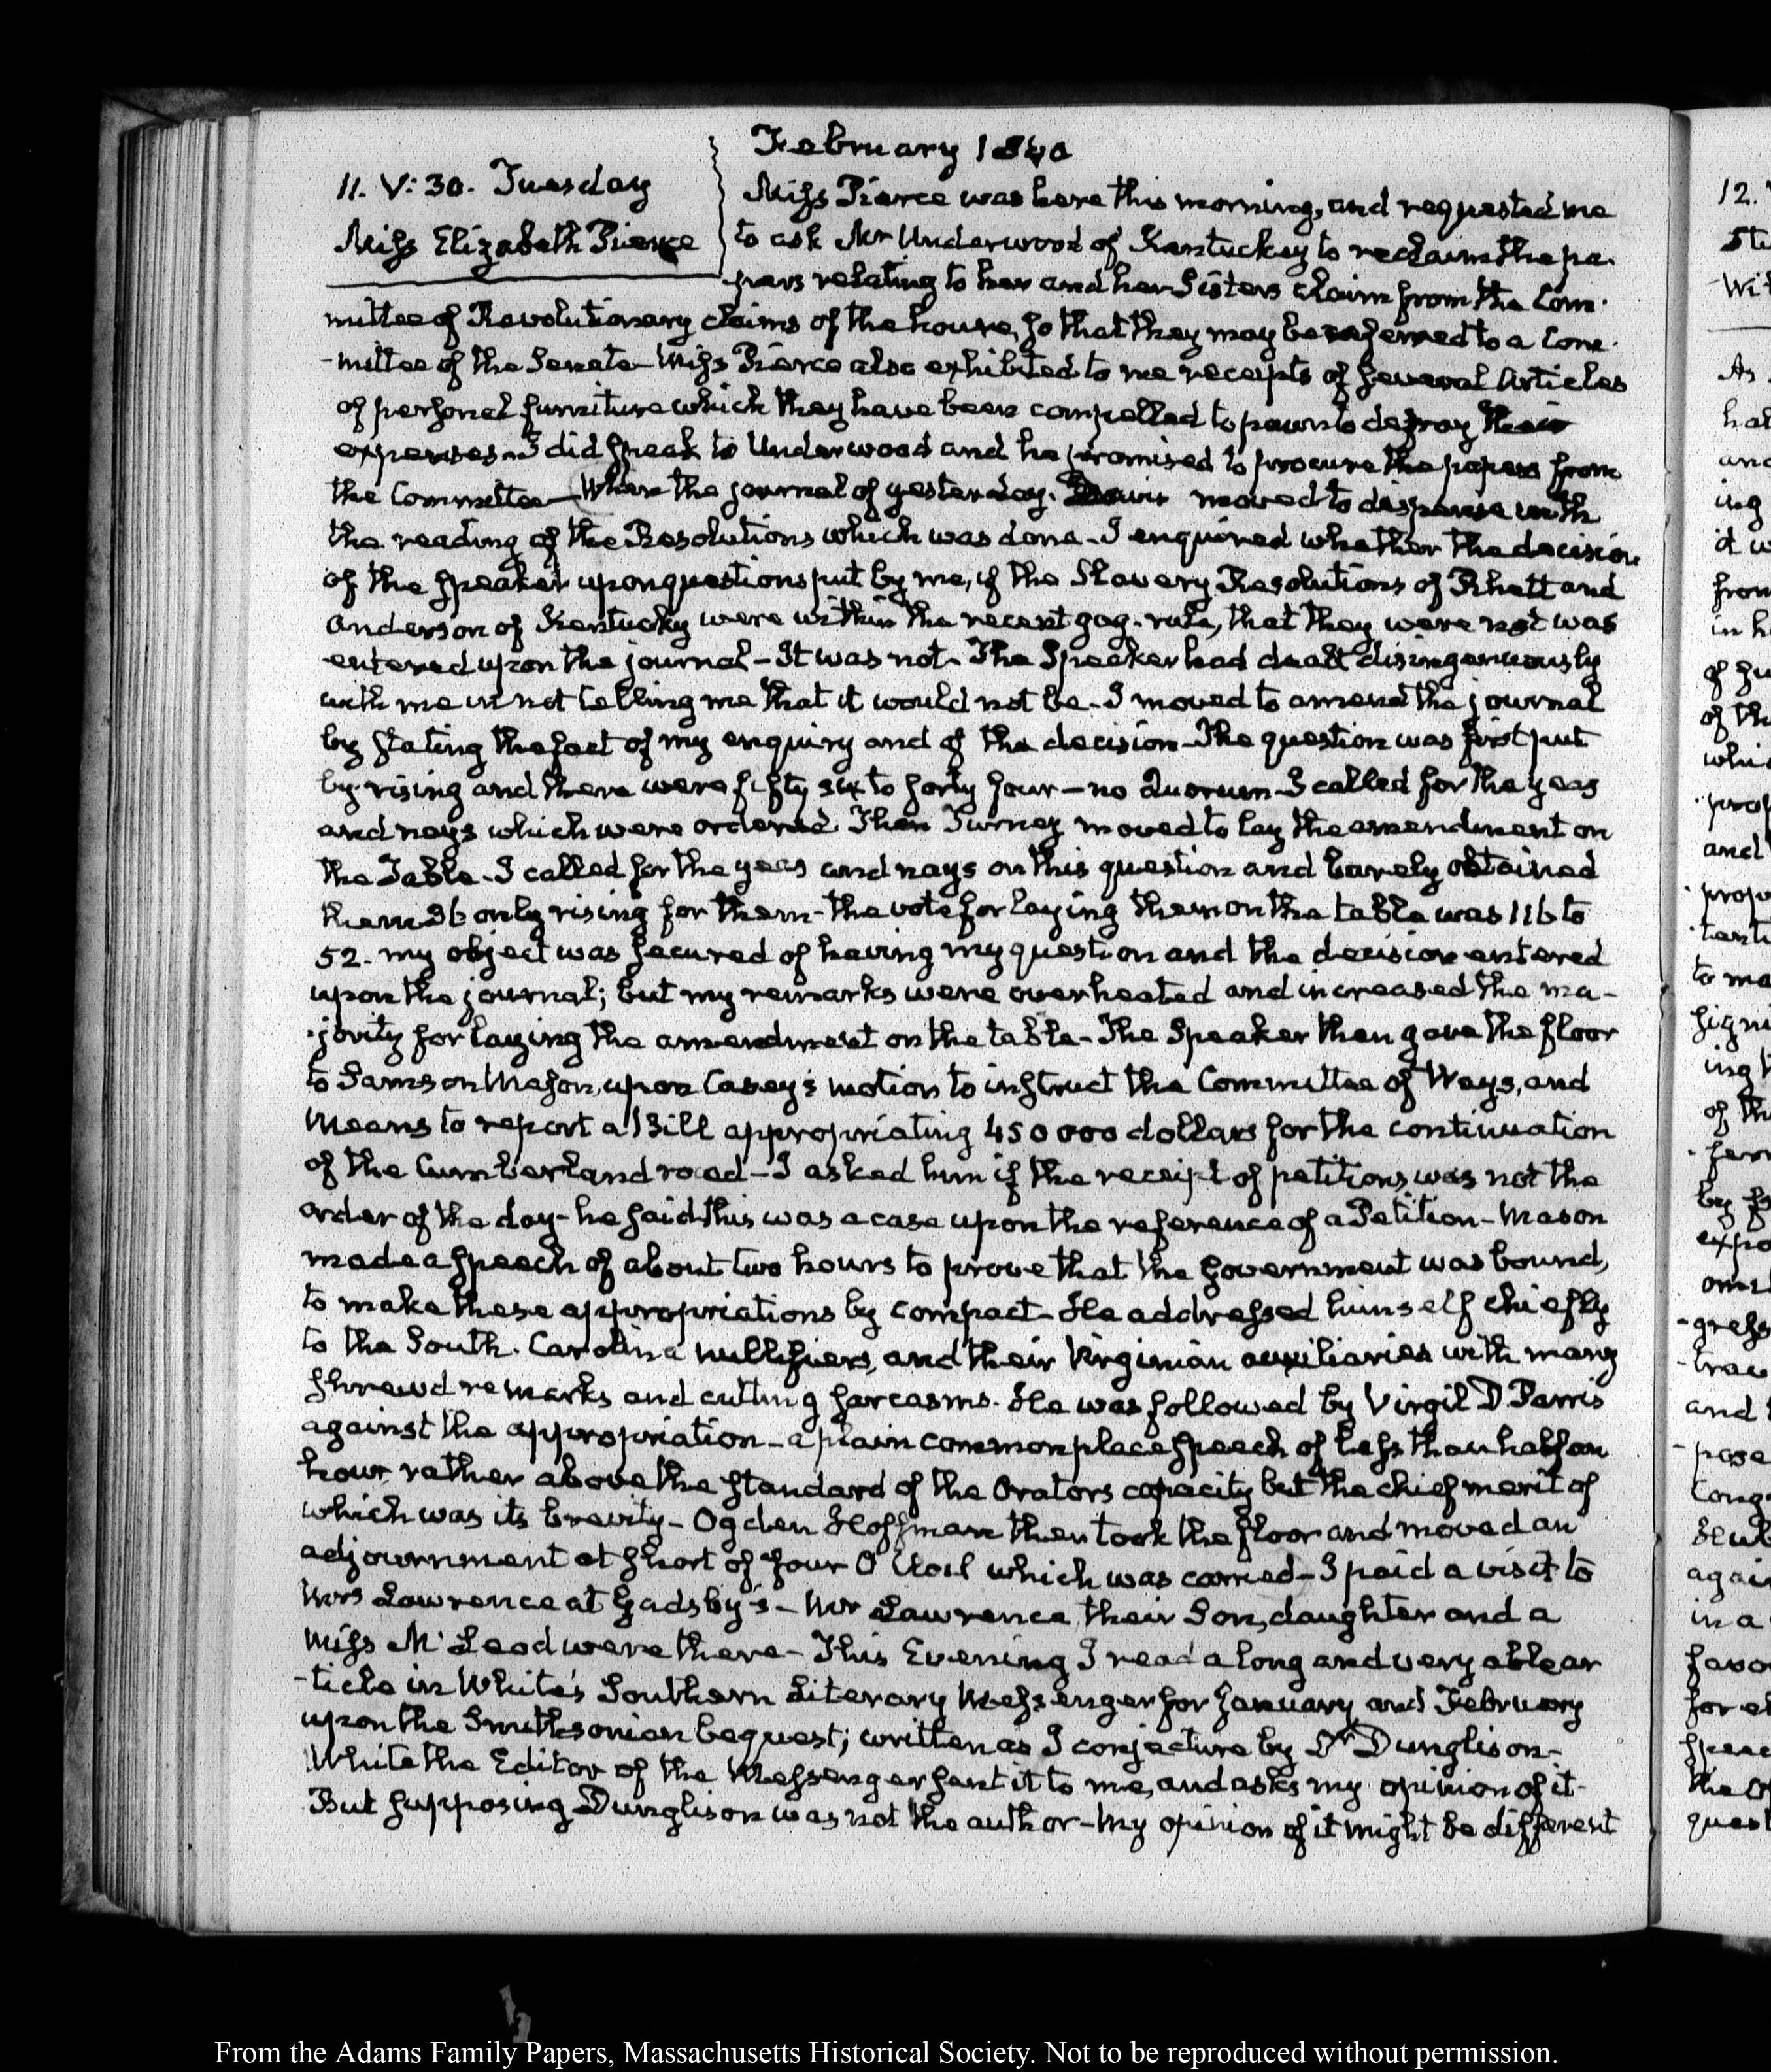 February 1840
11. V:30. Tuesday
Miss Elizabeth Pierce
Miss Pierce was here this morning, and requested me
to ask Mr Underwood of Kentuckey to reclaim the pa-
pers relating to her and her Sisters claim from the Com-
mittee of Revolutionary claims of the house, so that they may be referred to a Com-
-mittee of the Senate- Miss Pierce also exhibited to me receipts of several Articles
of personal furniture which they have been compelled to pawn to defray their
expenses- I did speak to Underwood and he promised to procure the papers from
the Committee- When the journal of yesterday. moved to dispense with
the reading of the Resolutions which was done- I enquired whether the decision
of the Speaker upon questions put by me, if the Slavery Resolutions of Rhett and
Anderson of Kentucky were within the recent gag-rule, that they were not was
entered upon the journal- It was not- The Speaker had dealt disingenuously
with me in not telling me that it would not be- I moved to amend the journal
by stating the fact of my enquiry and of the decision- The question was first put
by rising and there were fifty six to forty four- no Quorum- I called for the yeas
and nays which were ordered. Then Turney moved to lay the amendment on
the Table- I called for the yeas and nays on this question and barely obtained
them 36 only rising for them- the vote for laying them on the table was 116 to
52. my object was secured of having my question and the decision entered
upon the journal; but my remarks were overheated and increased the ma-
-jority for laying the amendment on the table- The Speaker then gave the floor
to Samson Mason, upon Casey's motion to instruct the Committee of Ways, and
Means to report a Bill appropriating 450000 dollars for the continuation
of the Cumberland road- I asked him if the receipt of petitions was not the
order of the day- he said this was a case upon the reference of a Petition- Mason
made a speech of about two hours to prove that the Government was bound,
to make these appropriations by compact- He addressed himself chiefly
to the South-Carolina nullifiers, and their Virginian auxiliaries with many
shrewd remarks and cutting sarcasms. He was followed by Virgil D Parris
against the appropriation- a plain common place speech of less than half an
hour, rather above the standard of the Orators capacity but the chief merit of
which was its brevity- Ogden Hoffman then took the floor and moved an
adjournment at short of four O'Clock which was carried- I paid a visit to
Mrs Lawrence at Gadsby's- Mr Lawrence, their Son, daughter and a
Miss McLeod were there- This Evening I read a long and very able ar
-ticle in White's Southern Literary Messenger for January and February
upon the Smithsonian bequest; written as I conjecture by Dr Dunglison-
White the Editor of the Messenger sent it to me, and asks my opinion of it-
But supposing Dunglison was not the author- My opinion of it might be different
12.
As
and
ing
it w
from
in h
of th
and
to ma
of th
and
pose
Cong
again
in a
From the Adams Family Papers, Massachusetts Historical Society. Not to be reproduced without permission.